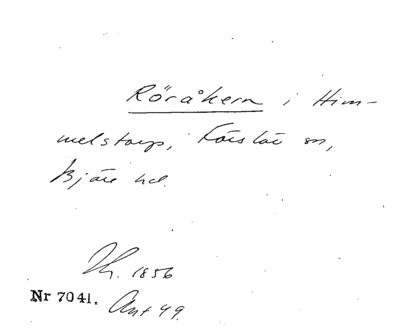 Röråkern i Him-
melstorp, Förslöv sn,
Bjäre hd.
1856
Nr 7041. Ant 49.